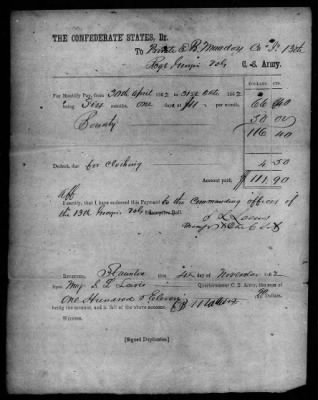 THE CONFEDERATE STATES, Dr.
To Private E B Meadors Co. F. 13th
Regt Georgia Vols C. S. Army.
DOLLARS. CTS.
For Monthly Pay, from 30th April 1862 to 31st Oct 1862
being Six months, one days at $11 per month, 66 40
Bounty 50 00
116 40
Deduct, due for Clothing 4 50
Account paid, $ 111 90
I certify, that I have endorsed this Payment to the Commanding officer of
the 13th Georgia Vols Roll.
RECEIVED, Staunton this 4th day of November 1862
from Maj Quartermaster C. S. Army, the sum of
One Hundred & Eleven 90/100 Dollars,
being the amount, and in full of the above account.
Witness.
[Signed Duplicates.]